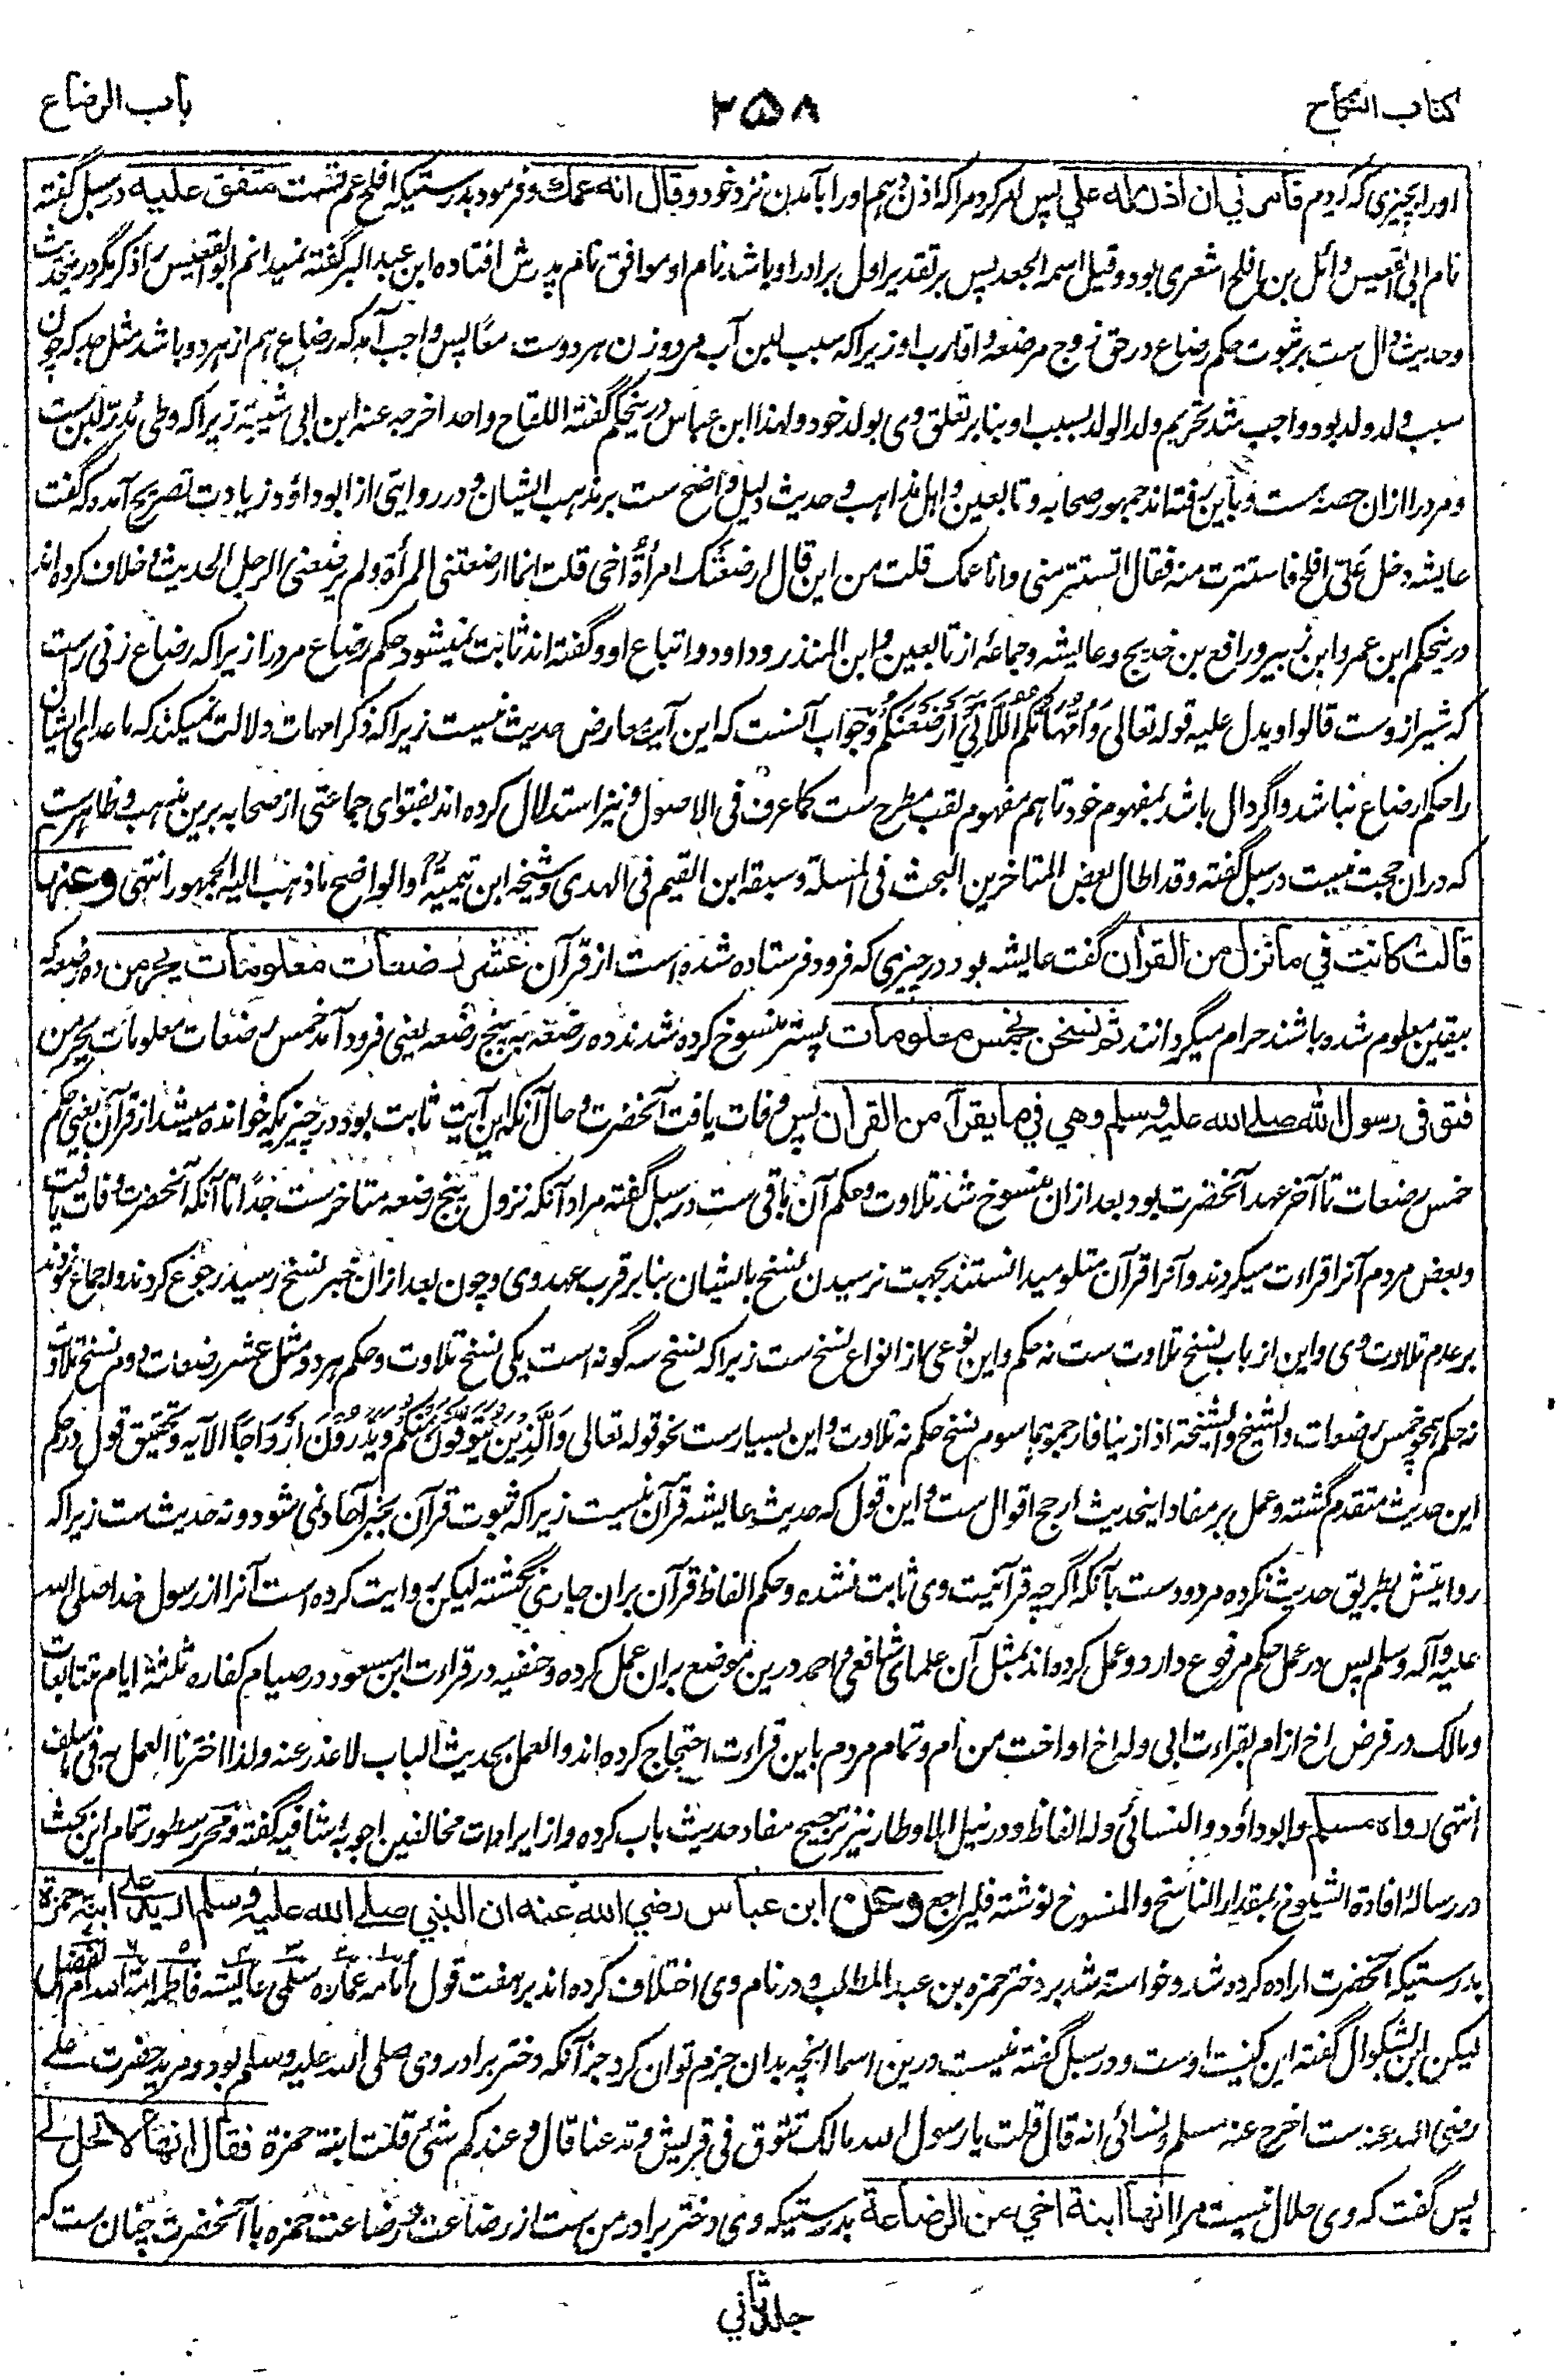 کتاب النکاح
۲۵۸
باب الرضاع
اورا بچیزی که کردم فامرنی ان اذن له علی پس امر کرد مرا که اذن دهم او را بآمدن نزد خود وقال انه عمك وفرمود بدرستیکه افلح عم تست متفق علیه در سبل گفته
نام ابی القعیس وائل بن افلح اشعری بود وقیل اسمه الجعد پس بر تقدیر اول برادر او باشد نام او موافق نام پدرش افتاده ابن عبد البر گفته نمیدانم ابو القعیس را ذکر مگر درینحدیث
وحدیث دال ست بر ثبوت حکم رضاع در حق زوج مرضعه واقارب او زیرا که سبب لبن آب مرد وزن هر دوست معًا پس واجب آمد که رضاع هم از هر دو باشد مثل جد که چون
سبب ولد ولد بود واجب شد تحریم ولد الولد بسبب او بنا بر تعلق وی بولد خود ولهذا ابن عباس درینحکم گفته اللقاح واحد اخرجه عنه ابن ابی شیبة زیرا که وطی مدرّ لبن ست
ومرد را ازان حصه ست وباین رفته اند جمهور صحابه وتابعین واهل مذاهب وحدیث دلیل واضح ست بر مذهب ایشان ودر روایتی از ابوداؤد زیادت تصریح آمده که گفت
عایشه دخل عَلَیّ افلح فاستترت منه فقال اتستترین منی وانا عمک قلت من این قال ارضعتک امرأةُ اخی قلت انما ارضعتنی المرأة ولم یرضعنی الرجل الحدیث وخلاف کرده اند
درینحکم ابن عمر وابن زبیر ورافع بن خدیج وعایشه وجماعهٔ از تابعین وابن المنذر وداود واتباع او وگفته اند ثابت نمیشود حکم رضاع مرد را زیرا که رضاع زنی راست
که شیر از وست قالوا ویدل علیه قوله تعالی وَاُمَّهَاتُکُمُ اللَّاتِیْ اَرْضَعْنَکُمْ وجواب آنست که این آیت معارض حدیث نیست زیرا که ذکر امهات دلالت نمیکند که ما عدای ایشان
را حکم رضاع نباشد واگر دال باشد بمفهوم خود تا هم مفهوم لقب مطرح ست کما عرف فی الاصول ونیز استدلال کرده اند بفتوای جماعتی از صحابه برین مذهب وظاهرست
که دران حجت نیست در سبل گفته وقد اطال بعض المتاخرین البحث فی المسئلة وسبقه ابن القیم فی الهدی وشیخه ابن تیمیةؒ والواضح ما ذهب الیه الجمهور انتهی وعنها
قالت کانت فی ما نزل من القرآن گفت عایشه بود در چیزی که فرود فرستاده شده است از قرآن عشر رضعات معلومات یحرمن ده رضعه که
بیقین معلوم شده باشند حرام میگردانند ثم نسخن بخمس معلومات پستر منسوخ کرده شدند ده رضعه به پنج رضعه یعنی فرود آمد خمس رضعات معلومات یحرمن
فتوفی رسول الله صلی الله علیه وسلم وهی فی ما یقرأ من القرآن پس وفات یافت آنحضرت وحال آنکه این آیت ثابت بود در چیزیکه خوانده میشد از قرآن یعنی حکم
خمس رضعات تا آخر عهد آنحضرت بود بعد ازان منسوخ شد تلاوت وحکم آن باقی ست در سبل گفته مراد آنکه نزول پنج رضعه متاخر ست جدًا تا آنکه آنحضرت وفات یافت
وبعض مردم آنرا قراءت میکردند وآنرا قرآن متلو میدانستند بجهت نرسیدن نسخ بایشان بنا بر قرب عهد وی وچون بعد ازان خبر نسخ رسید رجوع کردند واجماع نمودند
بر عدم تلاوت وی واین از باب نسخ تلاوت ست نه حکم واین نوعی از انواع نسخ ست زیرا که نسخ سه گونه است یکی نسخ تلاوت وحکم هر دو مثل عشر رضعات دوم نسخ تلاوت
نه حکم همچو خمس رضعات والشیخ والشیخة اذا زنیا فارجموهما سوم نسخ حکم نه تلاوت واین بسیارست نحو قوله تعالی وَالَّذِیْنَ یُتَوَفَّوْنَ مِنْکُمْ وَیَذَرُوْنَ اَزْوَاجًا الآیه وتحقیق قول در حکم
این حدیث متقدم گشته وعمل بر مفاد اینحدیث ارجح اقوال ست واین قول که حدیث عایشه قرآن نیست زیرا که ثبوت قرآن بخبر آحاد نمی شود ونه حدیث ست زیرا که
روایتش بطریق حدیث نکرده مردودست بآنکه اگرچه قرآنیت وی ثابت نشده وحکم الفاظ قرآن بران جاری نگشته لیکن روایت کرده است آنرا از رسول خدا صلی الله
علیه وآله وسلم پس در عمل حکم مرفوع دارد وعمل کرده اند بمثل آن علما شافعی واحمد درین موضع بران عمل کرده وحنفیه در قراءت ابن مسعود در صیام کفاره ثلثة ایام متتابعات
ومالک در فرض اخ از ام بقراءت ابی وله اخ او اخت من ام وتمام مردم باین قراءت احتجاج کرده اند والعمل بحدیث الباب لا عذر عنه ولذا اخترنا العمل به فی ما سلف
انتهی رواه مسلم وابوداؤد والنسائی وله الفاظ ودر نیل الاوطار نیز ترجیح مفاد حدیث باب کرده واز ایرادات مخالفین اجوبهٔ شافیه گفته ومحرر سطور تمام این بحث
در رسالهٔ افادة الشیوخ بمقدار الناسخ والمنسوخ نوشته فلیراجع وعن ابن عباس رضی الله عنه ان النبی صلی الله علیه وسلم ارید علی ابنة حمزة
بدرستیکه آنحضرت اراده کرده شد وخواسته شد بر دختر حمزه بن عبد المطلب ودر نام وی اختلاف کرده اند بر هفت قول امامه عماره سلمی عایشه فاطمه امة الله ام الفضل
لیکن ابن بشکوال گفته این کنیت اوست ودر سبل گفته نیست درین اسما آنچه بدان جزم توان کرد جز آنکه دختر برادر وی صلی الله علیه وسلم بود ومرید حضرت علی
رضی الله عنه ست اخرج عنه مسلم ونسائی انه قال قلت یا رسول الله مالک تتوق فی قریش وتدعنا قال وعندکم شیٔ قلت ابنة حمزة فقال انها لا تحل لی
پس گفت که وی حلال نیست مرا انها ابنة اخی من الرضاعة بدرستیکه وی دختر برادر من ست از رضاعت ورضاعت حمزه با آنحضرت چنان ست که
جلد ثانی